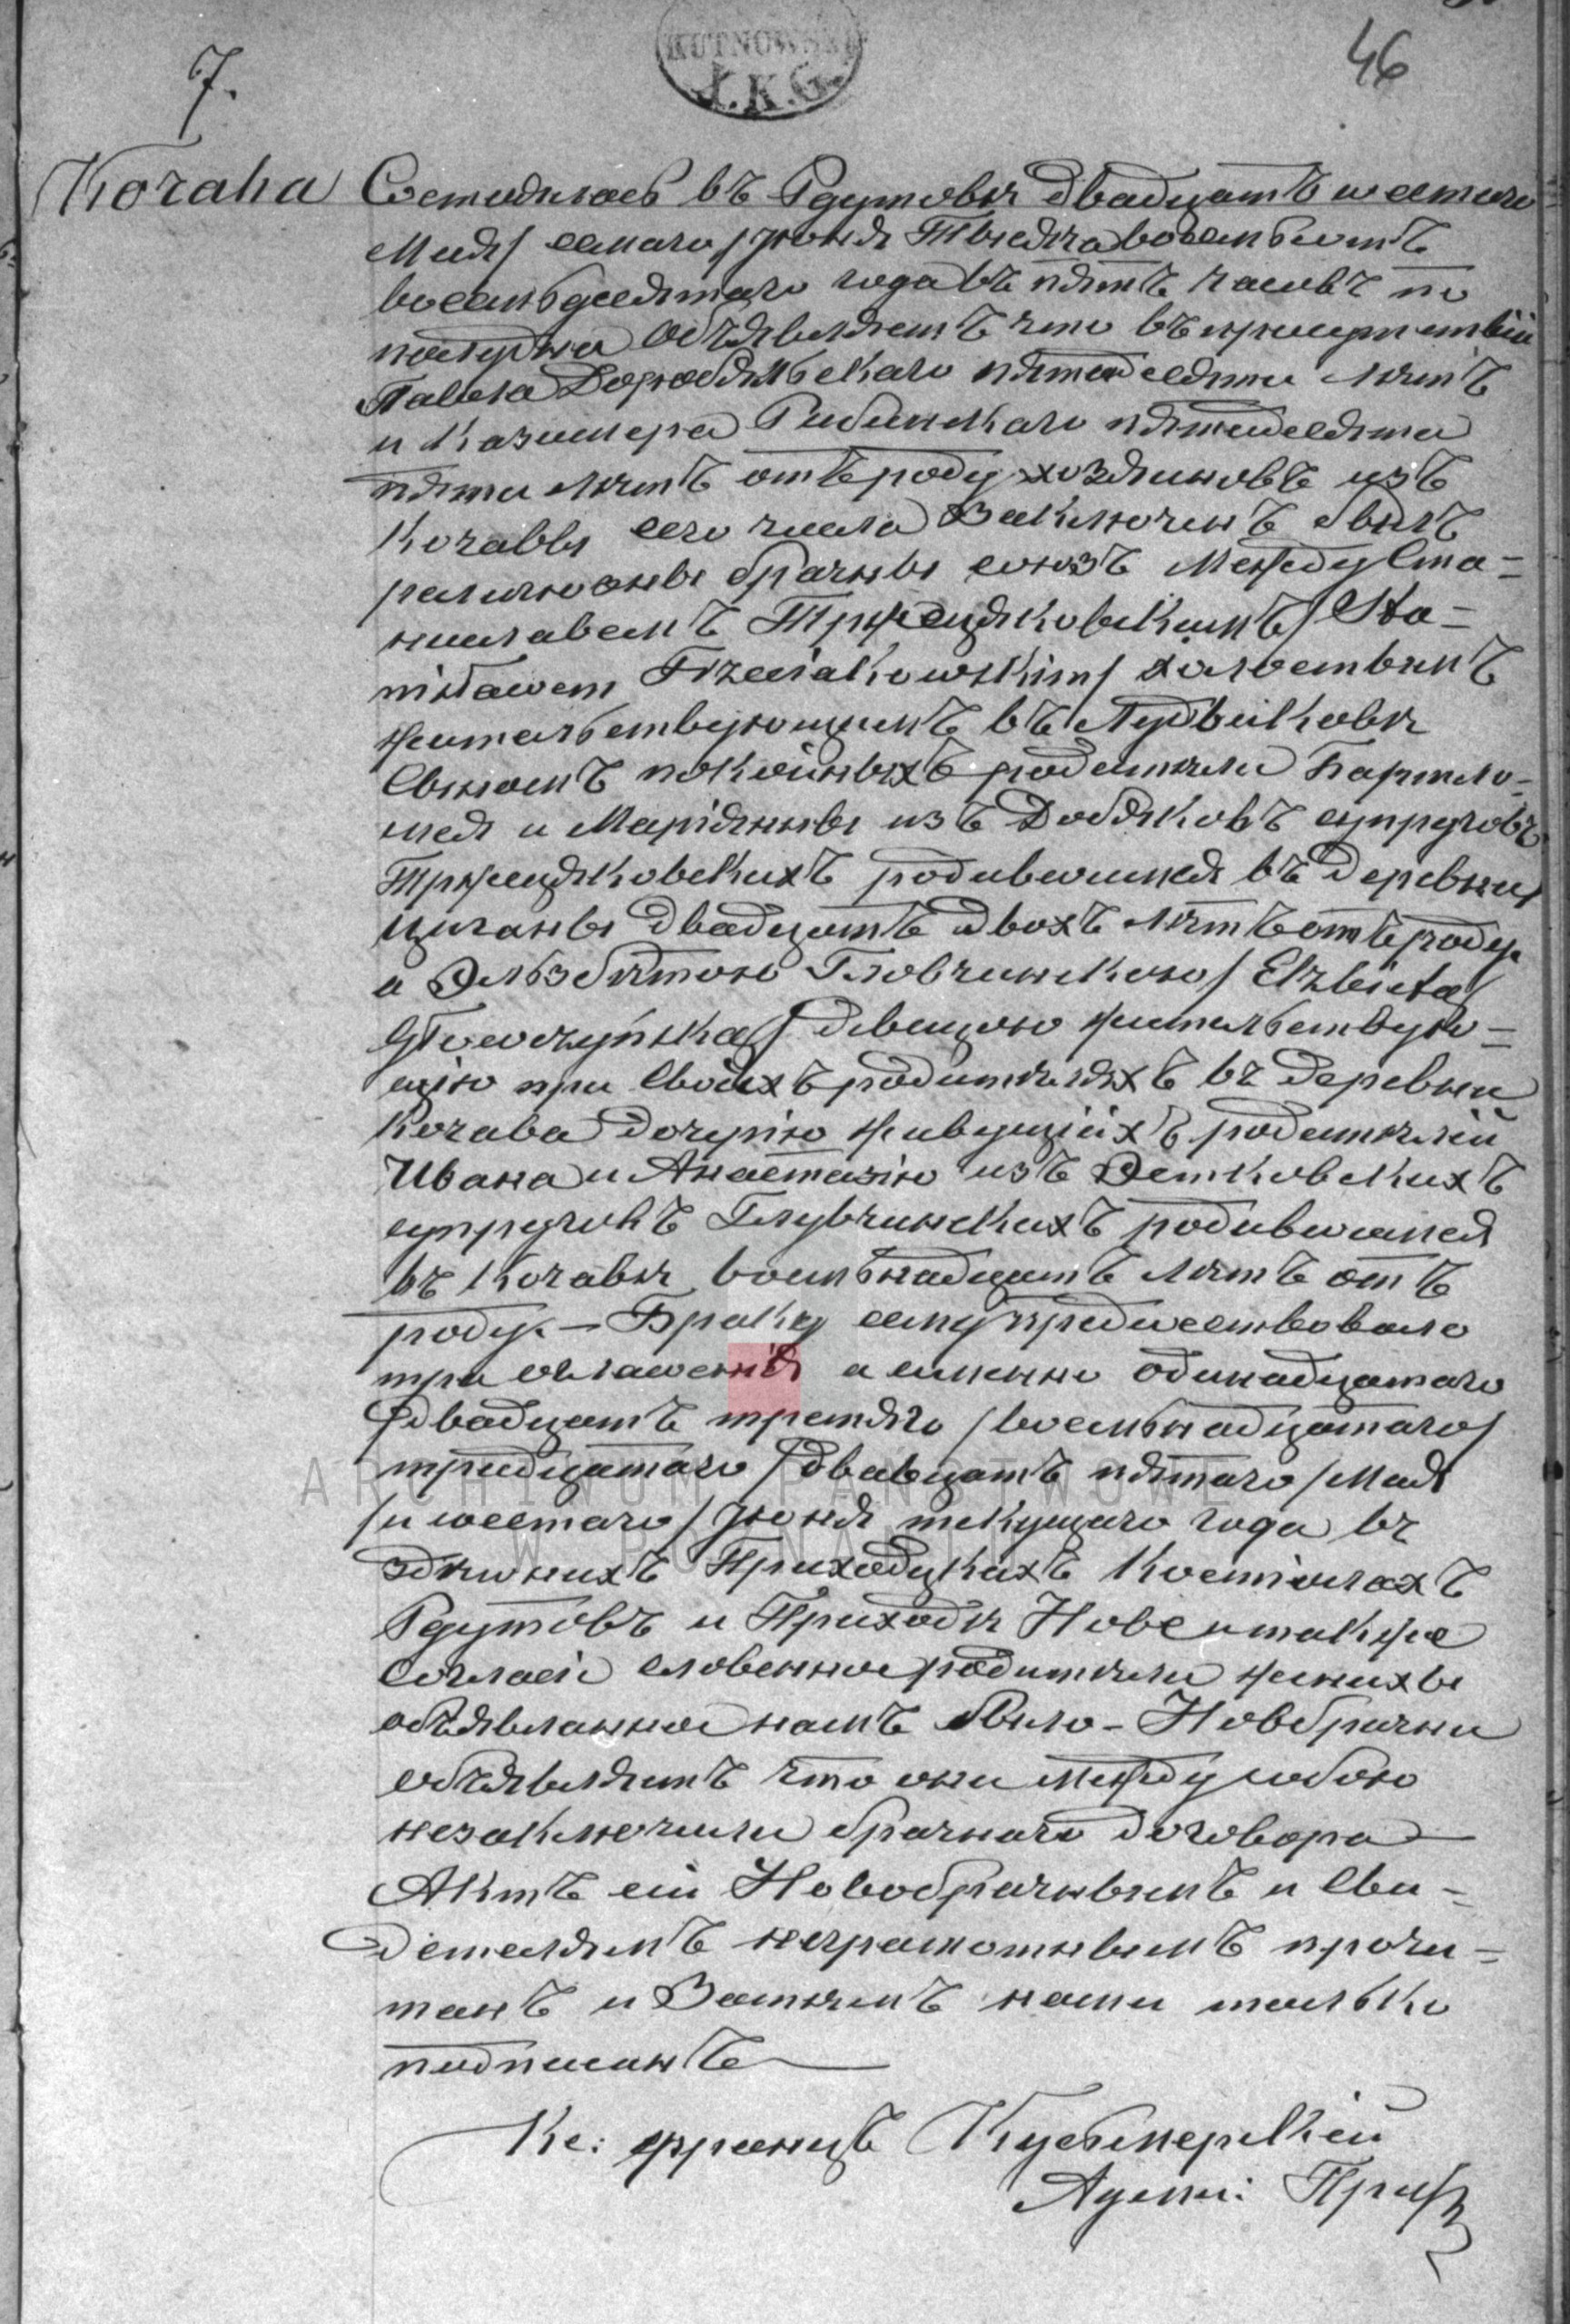 KUTNOWSKI
Ł.K.G.
46
7.
Кочава Состоялось въ Рдутовѣ двадцатъ шестаго
Мая/ седмаго/ Іюня Тысяча восемьсотъ
восемьдесятаго года въ пятъ часовъ по
полудна Объявляемъ что въ присутствіи
Павела пятидесяти лѣтъ
и Казимера Рибинскаго пятидесята
пяти лѣтъ отъ роду хозяиновъ изъ
Кочавы сего числа Заключенъ былъ
религіозны брачны союзъ Между Ста-
ниславемъ Тржецяковскимъ/ Sta-
nisławem Trzeciakowskim/ холостымъ
жительствующимъ въ Лудвиковѣ
Сыномъ покойныхъ родителѣ Бартло-
мея и Маріянны изъ Добяковъ супруговъ
Тржецяковскихъ родившимся въ деревни
Цыганы двадцатъ двохъ лѣтъ отъ роду
а Эльзбѣтою Гловчинскою/ Elżbieta
Głowczyńska/ дѣвицою жительствую-
щію при своихъ родителяхъ въ деревни
Кочава дочерію живущихъ родителій
Ивана и Анастазію изъ Эшковскихъ
супруговъ Глувчинскихъ родившимся
въ Кочавѣ восьмнадцатъ лѣтъ отъ
роду. – Браку сему предшествовало
три оглашенія а именно одинадцатаго
двадцатъ третяго /восемьнадцатаго/
тридцатаго /двадцатъ пятаго/ Мая
/и шестаго/ Іюня текущаго года въ
здѣшнихъ Приходцкихъ Костіолахъ
Рдутовъ и Приходѣ Нове и также
согласіе словенное родителѣ женихы
объявланное намъ было – Новобрачни
объявляютъ что они между собою
незаключили брачнаго договора —
Актъ сіи Новобрачнымъ и Сви-
детелямъ неграмотнымъ прочи-
танъ и Затѣмъ нами только
подписанъ —
Кс: Францъ Кусьмерскій
Адми: Прих
ARCHIWUM PAŃSTWOWE
W POZNANIU